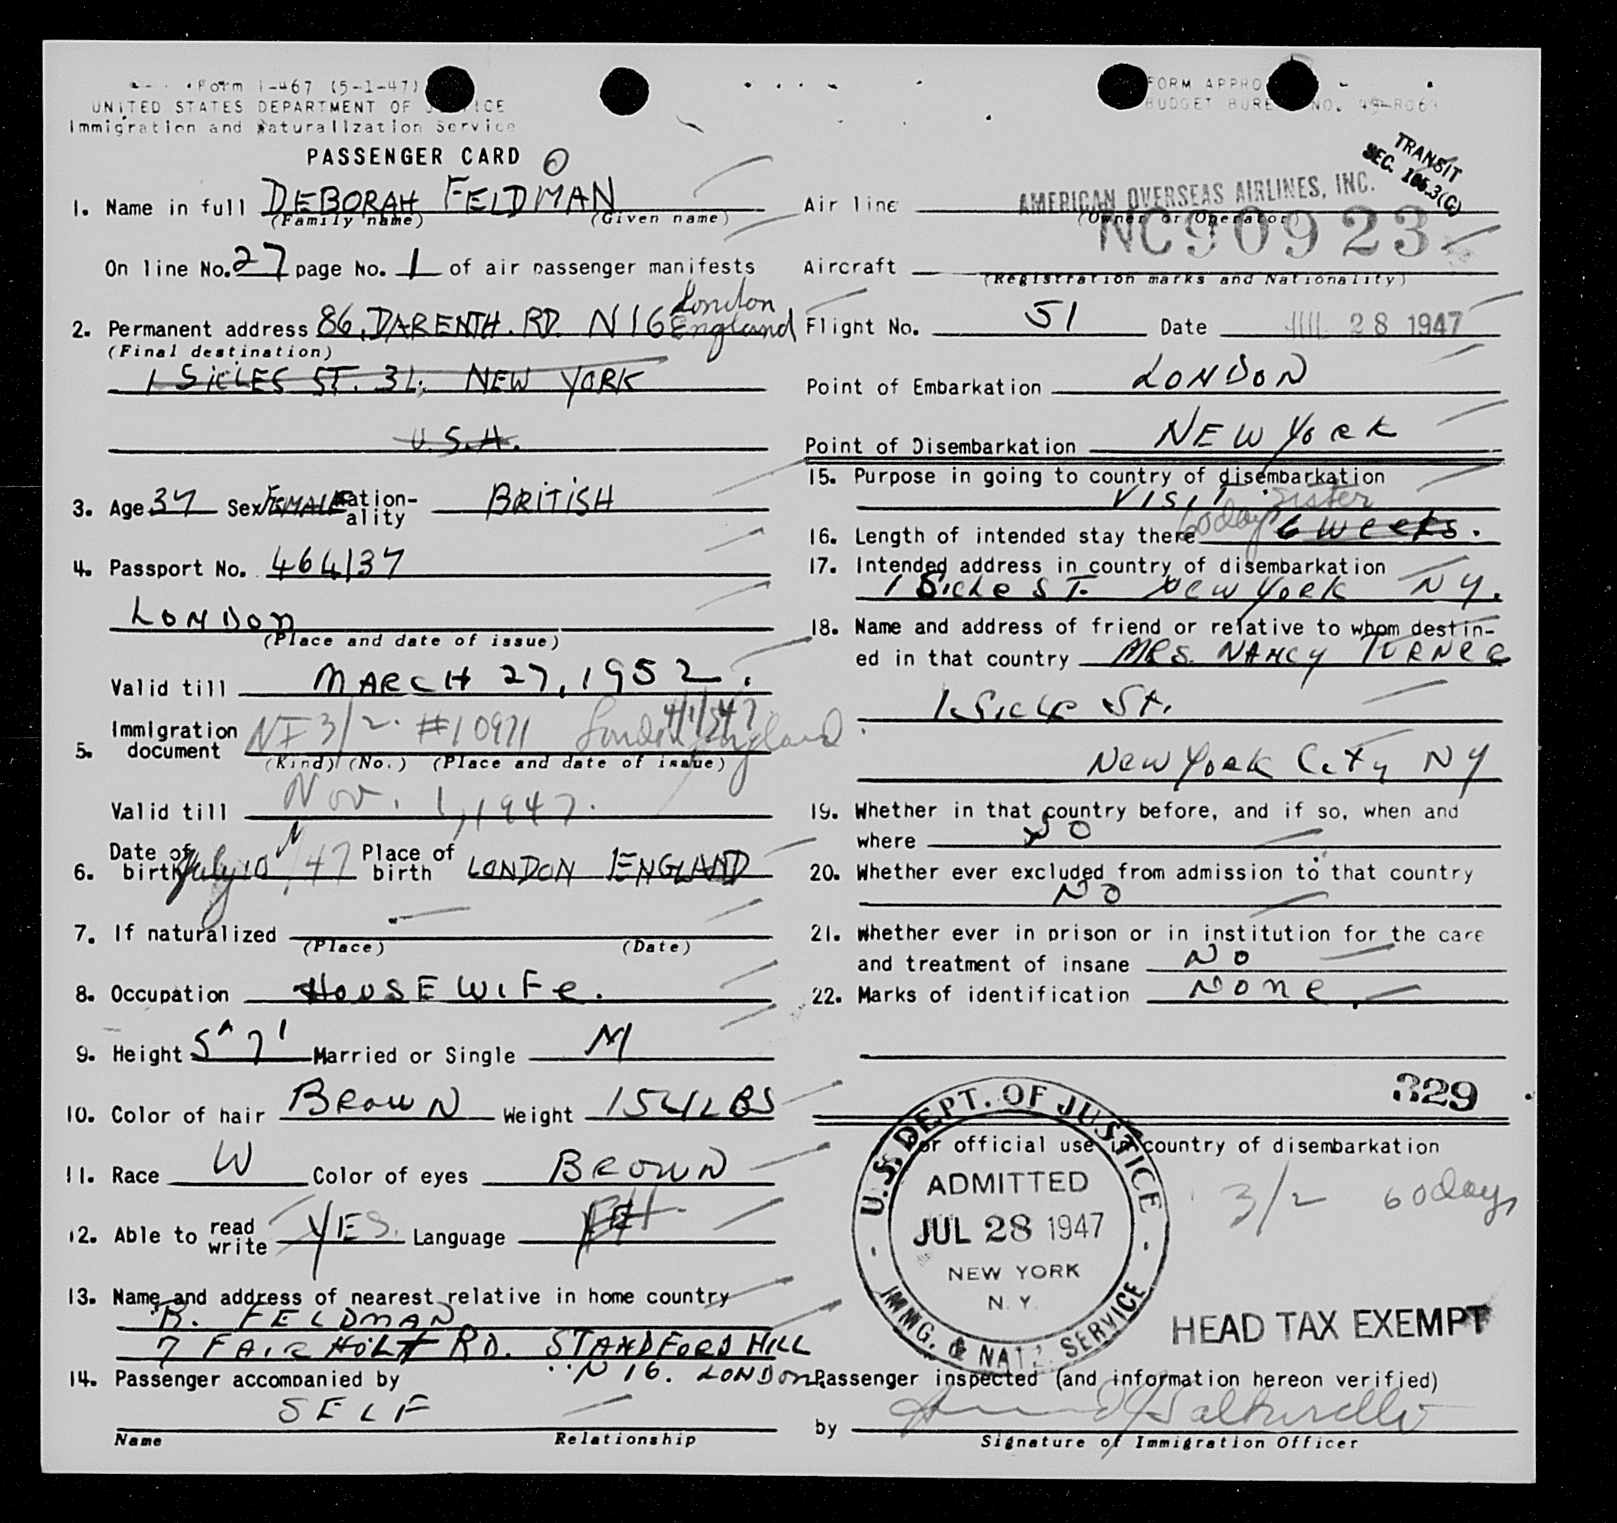 Form I-467 (5-1-47)
UNITED STATES DEPARTMENT OF JUSTICE
Immigration and Naturalization Service
PASSENGER CARD
1. Name in full DEBORAH FELDMAN
(Family name) (Given name)
On line No. 27 page No. 1 of air passenger manifests
2. Permanent address 86, DARENTH. RD. N16 London England
(Final destination)
1 SICLES ST. 34. NEW YORK
U.S.A.
3. Age 37 Sex FEMALE Nationality BRITISH
4. Passport No. 464137
LONDON
(Place and date of issue)
Valid till MARCH 27, 1952.
5. Immigration document NI 3/2. #10971 London England
(Kind) (No.) (Place and date of issue)
Valid till Nov. 1, 1947.
6. Date of birth July 10, 47 Place of birth LONDON ENGLAND
7. If naturalized
(Place) (Date)
8. Occupation HOUSEWIFE.
9. Height 5" 7' Married or Single M
10. Color of hair BROWN Weight 154 LBS
11. Race W Color of eyes BROWN
12. Able to read write YES. Language
13. Name and address of nearest relative in home country
B. FELDMAN
7 FAIRHOLT RD. STAMDFORD HILL
N 16. LONDON
14. Passenger accompanied by
SELF
Name Relationship
FORM APPRO
BUDGET BUREAU NO.
TRANSIT
SEC. 105.3(C)
Air line AMERICAN OVERSEAS AIRLINES, INC.
(Owner or Operator)
Aircraft NC90923
(Registration marks and Nationality)
Flight No. 51 Date JUL 28 1947
Point of Embarkation LONDON
Point of Disembarkation NEW YORK
15. Purpose in going to country of disembarkation
VISIT. sister
16. Length of intended stay there 60 days 6 weeks.
17. Intended address in country of disembarkation
1 Sickle ST. New York NY.
18. Name and address of friend or relative to whom destin-
ed in that country MRS. NANCY TURNER
1. Sickle St.
New York City NY
19. Whether in that country before, and if so, when and
where NO
20. Whether ever excluded from admission to that country
NO
21. Whether ever in prison or in institution for the care
and treatment of insane NO
22. Marks of identification None.
329
For official use in country of disembarkation
U.S. DEPT. OF JUSTICE
ADMITTED
JUL 28 1947
NEW YORK
N.Y.
IMMG. & NATZ. SERVICE
3/2 60 days
HEAD TAX EXEMPT
Passenger inspected (and information hereon verified)
by
Signature of Immigration Officer